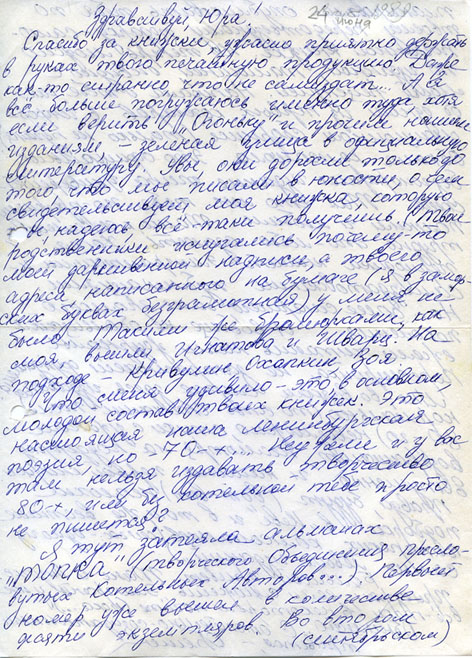 Здравствуй, Юра! 24 июня 1989
Спасибо за книжки, ужасно приятно держать
в руках твою печатную продукцию. Даже
как-то странно, что не самиздат... А я
всё больше погружаюсь именно туда, хотя
если верить „Огоньку" и прочим нашим
изданиям, – зеленая улица в официальную
литературу. Увы, они доросли только до
того, что мы писали в юности, о чем
свидетельствует моя книжка, которую
ты, надеюсь, всё-таки получишь. (Твои
родственники испугались почему-то
моей дарственной надписи, а твоего
адреса, написанного на бумаге (я в
ских буквах безграмотная) у меня не
было. Такими же брошюрками, как
моя, вышли Игнатова и Шварц. На
подходе – Кривулин, Охапкин, Зоя.
Что меня удивило – это, в основном,
молодой состав твоих книжек. Это
настоящая наша ленинбургская
поэзия, но 70-х... Неужели и у вас
там нельзя издавать творчество
80-х, или без котельной тебе просто
не пишется?
Я тут затеяла альманах
„Топка" (Творческого Объединения пресло-
вутых Котельных Авторов...). Первый
номер уже вышел в количестве
пяти экземпляров. Во втором
(сентябрьском)